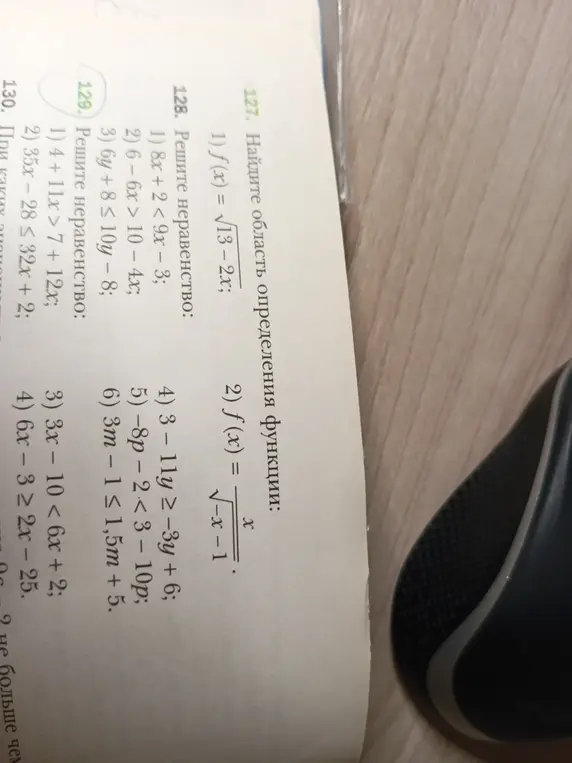 127. Найдите область определения функции:
1) f(x) = √(13 − 2x); 2) f(x) = x/√(−x − 1).
128. Решите неравенство:
1) 8x + 2 < 9x − 3; 4) 3 − 11y ≥ −3y + 6;
2) 6 − 6x > 10 − 4x; 5) −8p − 2 < 3 − 10p;
3) 6y + 8 ≤ 10y − 8; 6) 3m − 1 ≤ 1,5m + 5.
129. Решите неравенство:
1) 4 + 11x > 7 + 12x; 3) 3x − 10 < 6x + 2;
2) 35x − 28 ≤ 32x + 2; 4) 6x − 3 ≥ 2x − 25.
130. При каких не больше чем